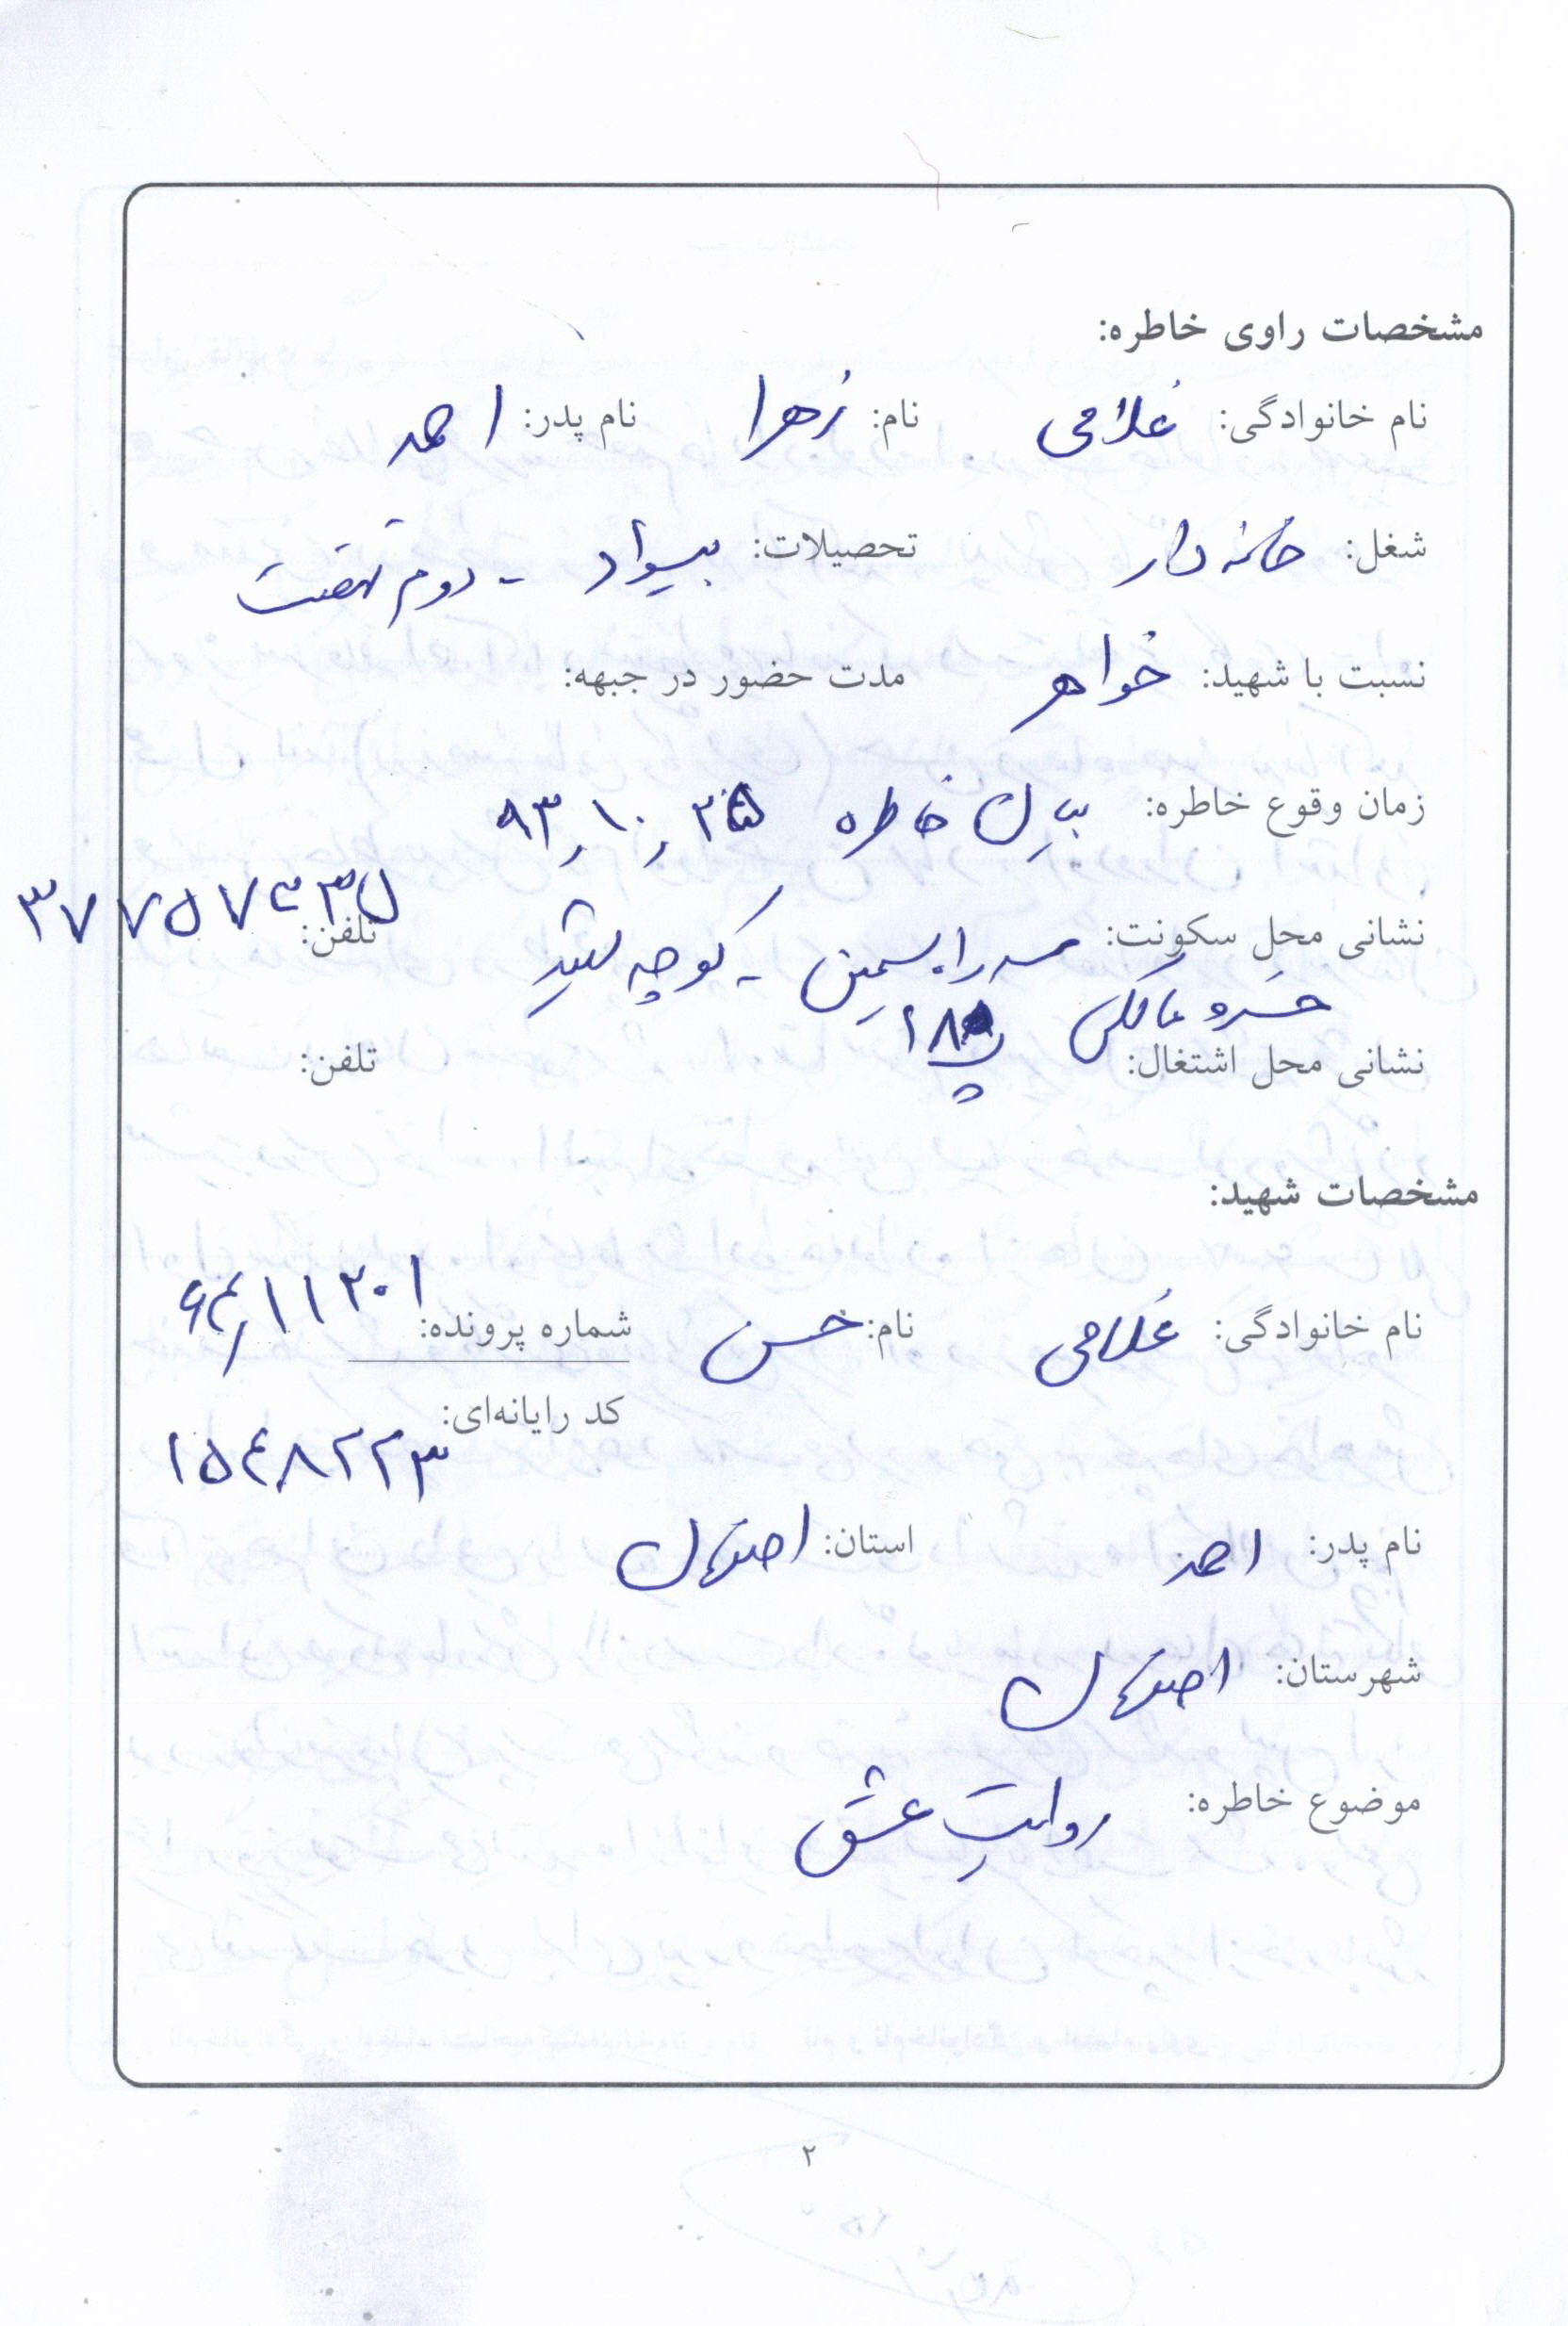 مشخصات راوی خاطره:
نام خانوادگی: غلامی نام: زهرا نام پدر: احمد
شغل: خانه دار تحصیلات: بیسواد - دوم نهضت
نسبت با شهید: خواهر مدت حضور در جبهه:
زمان وقوع خاطره: بیان خاطره ۹۳،۱۰،۲۵
نشانی محل سکونت: سه راه سیمین - کوچه شهید تلفن:
خسرو مالکی پ
نشانی محل اشتغال: تلفن:
مشخصات شهید:
نام خانوادگی: غلامی نام: حسن شماره پرونده:
کد رایانه‌ای: ۱۵۴۸۲۲۳
نام پدر: احمد استان: اصفهان
شهرستان: اصفهان
موضوع خاطره: روایتِ عشق
۲